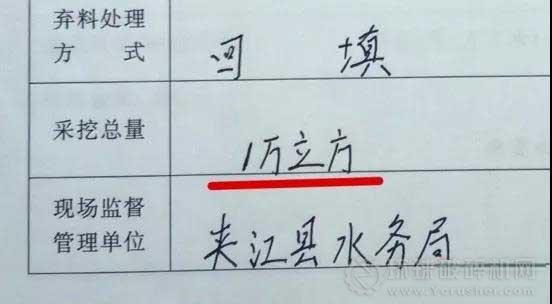 弃料处理
方 式
回 填
采挖总量
1万立方
现场监督
管理单位
夹江县水务局
环球破碎机网
www.Ycrusher.com